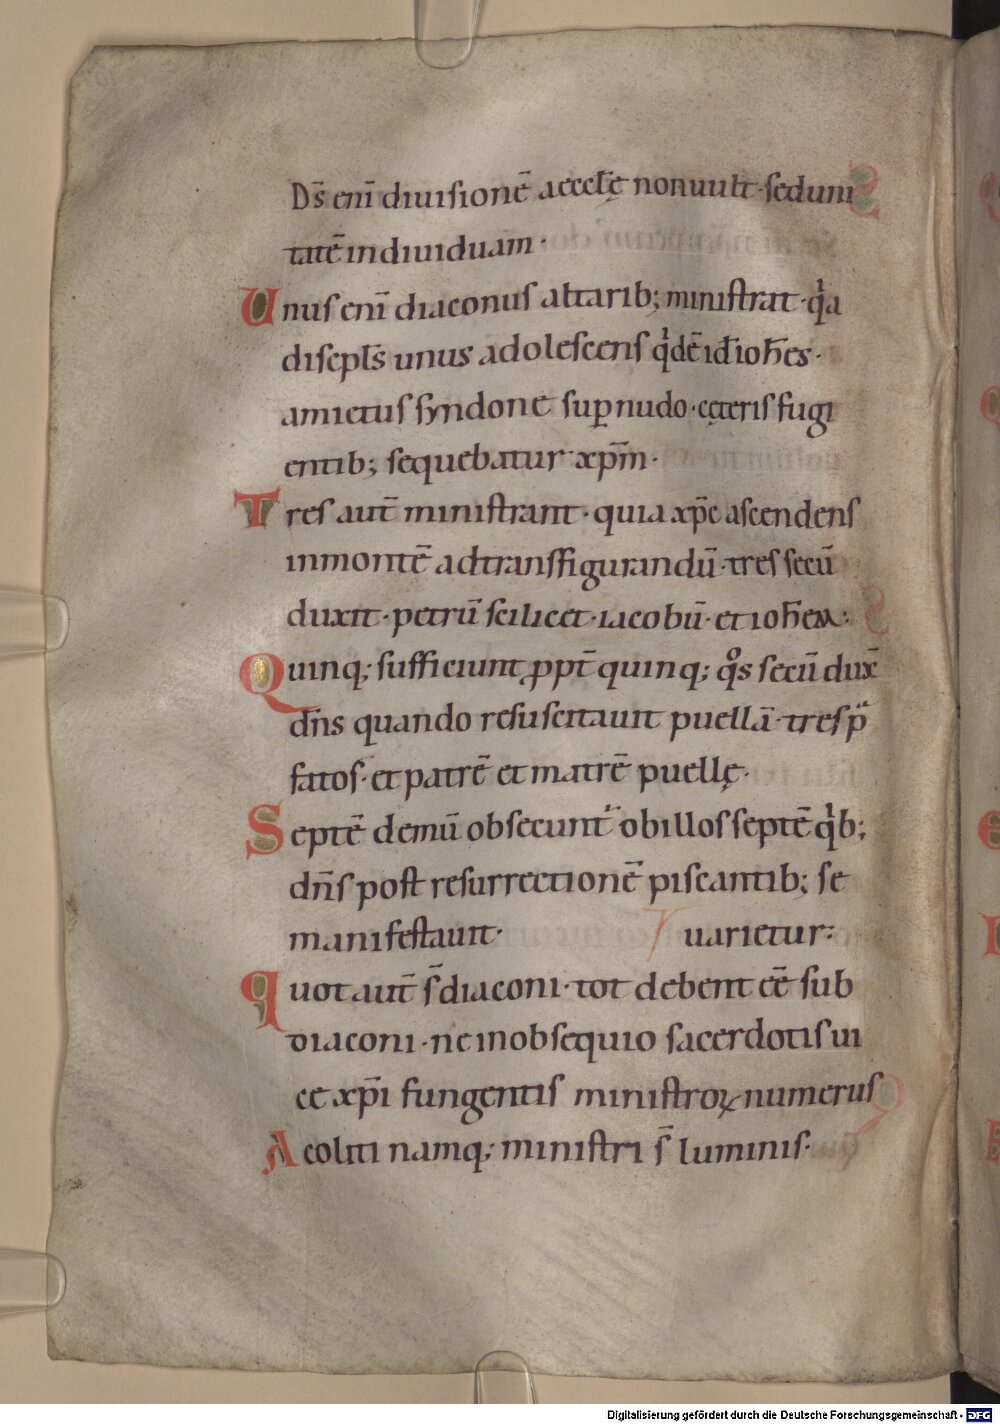 Ds̄ enī diuisionē aecclę̄ non uult · sed uni
tatē indiuiduam ·
Unus enī diaconus altarib; ministrat · qͥa
discipl̄s unus adolescens qͥdē id̄ ioħes ·
amictus syndone sup̱ nudo · cęteris fugi
entib; sequebatur xp̄m ·
Tres aut̄ ministrant · quia xp̄c ascendens
in montē ad transffigurandū · tres secū
duxit · petrū scilicet · iacobū · et ioħem :
Quinq; sufficiunt ꝓpt̄ quinq; qͦs secū dux̄
dn̄s quando resuscitauit puellā · tres p̄
fatos · et patrē et matrē puellę ·
Septē demū obsecunt᷑ ob illos septē qͥb;
dn̄s post resurrectionē piscantib; se
manifestauit · uarietur :
quot aut̄ s̄ diaconi · tot debent eē sub
diaconi · ne in obsequio sacerdotis ui
ce xp̄i fungentis ministroꝝ numerus
Acoliti namq; ministri s̄ luminis ·
Digitalisierung gefördert durch die Deutsche Forschungsgemeinschaft - DFG